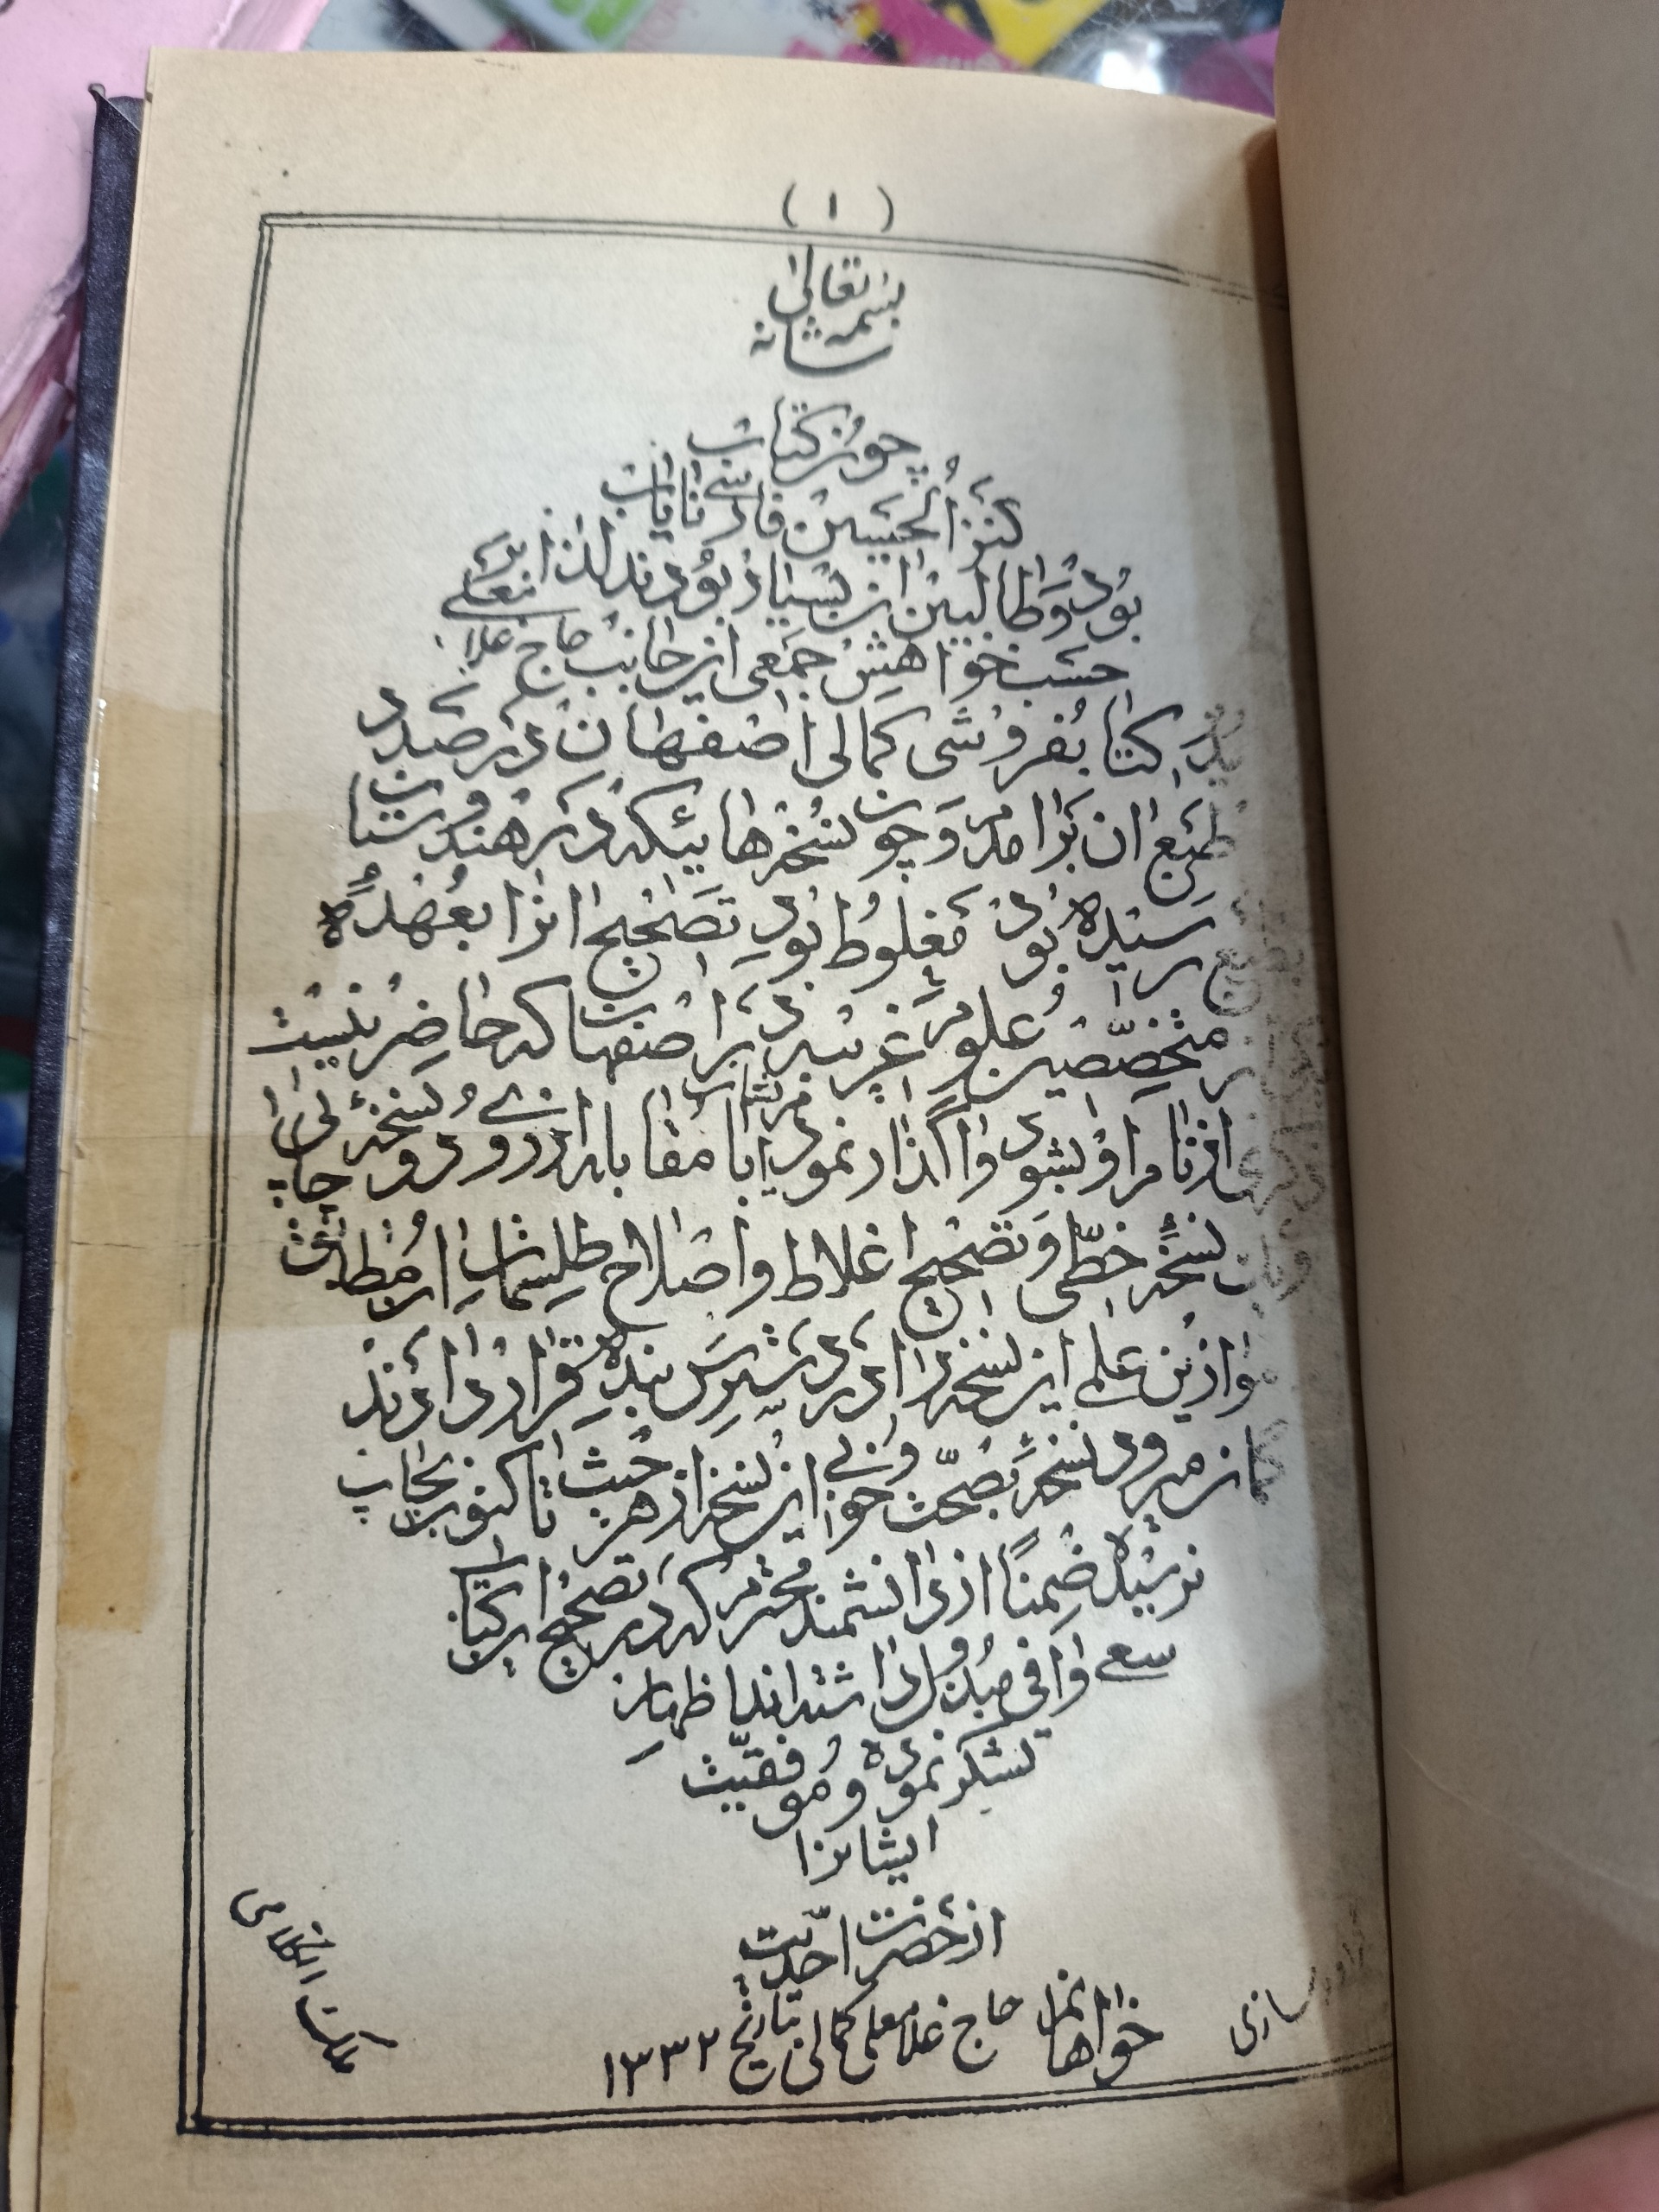 ( ۱ )
بسمه تعالی
شانه
چون کتاب
کنز الحسینی فارسی نایاب
بود و طالبین آن بسیار بودند لذا اینجانب
حسب خواهش جمعی از جانب حاج غلامعلی
کتابفروشی کمالی اصفهان در صدد
طبع آن برآمد و چون نسخه‌هاییکه در هندوستان
بطبع رسیده بود مغلوط بود تصحیح آنرا بعهده
متخصصین علوم غریبه در اصفهان که حاضر نیست
نام او بشود واگذار نمود ایشان با مقابله از روی دو نسخه چاپی
نسخه خطی و تصحیح اغلاط و اصلاح طلسمات از مطابق
موازین علمی این نسخه را در دسترس بنده قرار دادند
گمان نمیرود نسخه بصحت و خوبی این نسخه از هر حیث تا کنون بچاپ
نرسیده ضمناً از دانشمند محترم که در تصحیح این کتاب
سعی وافی مبذول داشته‌اند اظهار
تشکر نموده و موفقیت
ایشانرا
از حضرت احدیت
خواهانم حاج غلامعلی کمالی بتاریخ ۱۳۳۲
سازی